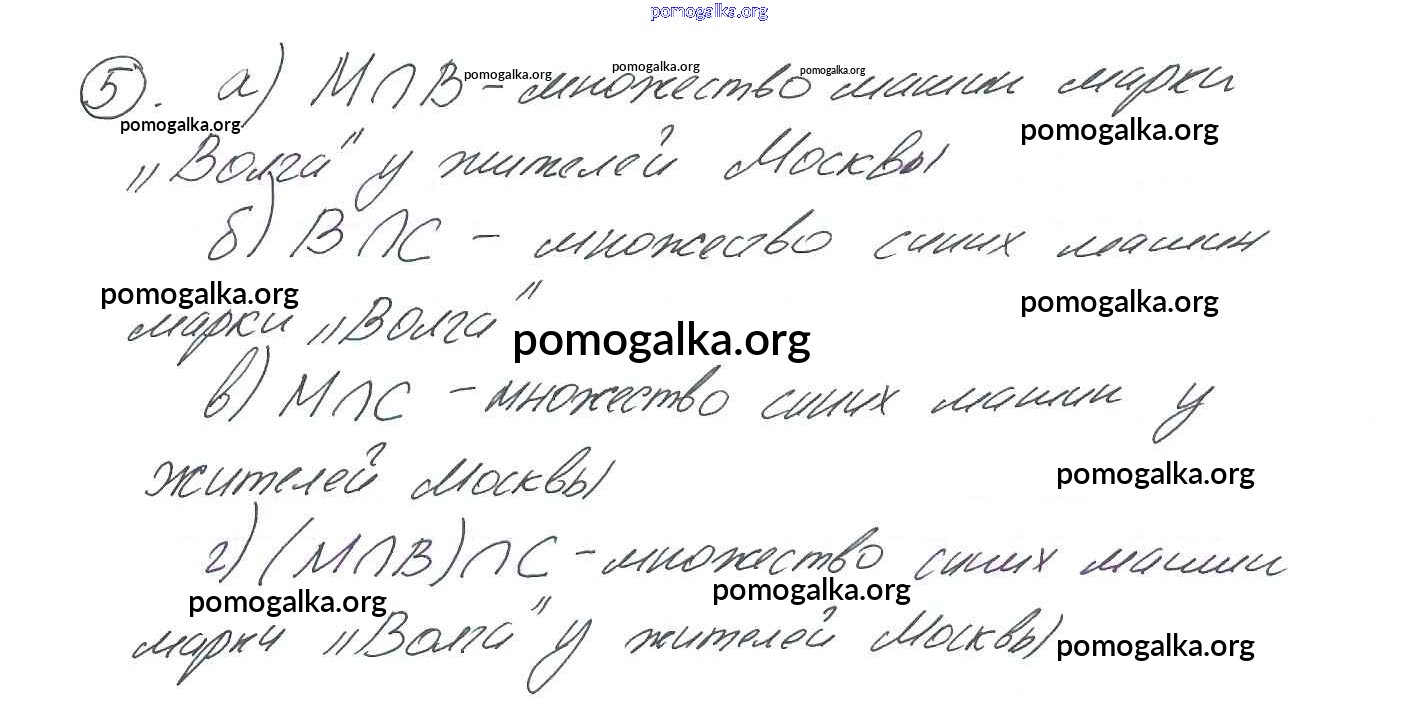 pomogalka.org
5. а) М∩В – множество машин марки
pomogalka.org pomogalka.org pomogalka.org
pomogalka.org pomogalka.org
„Волга" у жителей Москвы
б) В∩С – множество синих машин
pomogalka.org pomogalka.org
марки „Волга"
pomogalka.org
в) М∩С – множество синих машин у
жителей Москвы
pomogalka.org
г) (М∩В)∩С – множество синих машин
pomogalka.org pomogalka.org
марки „Волга" у жителей Москвы
pomogalka.org